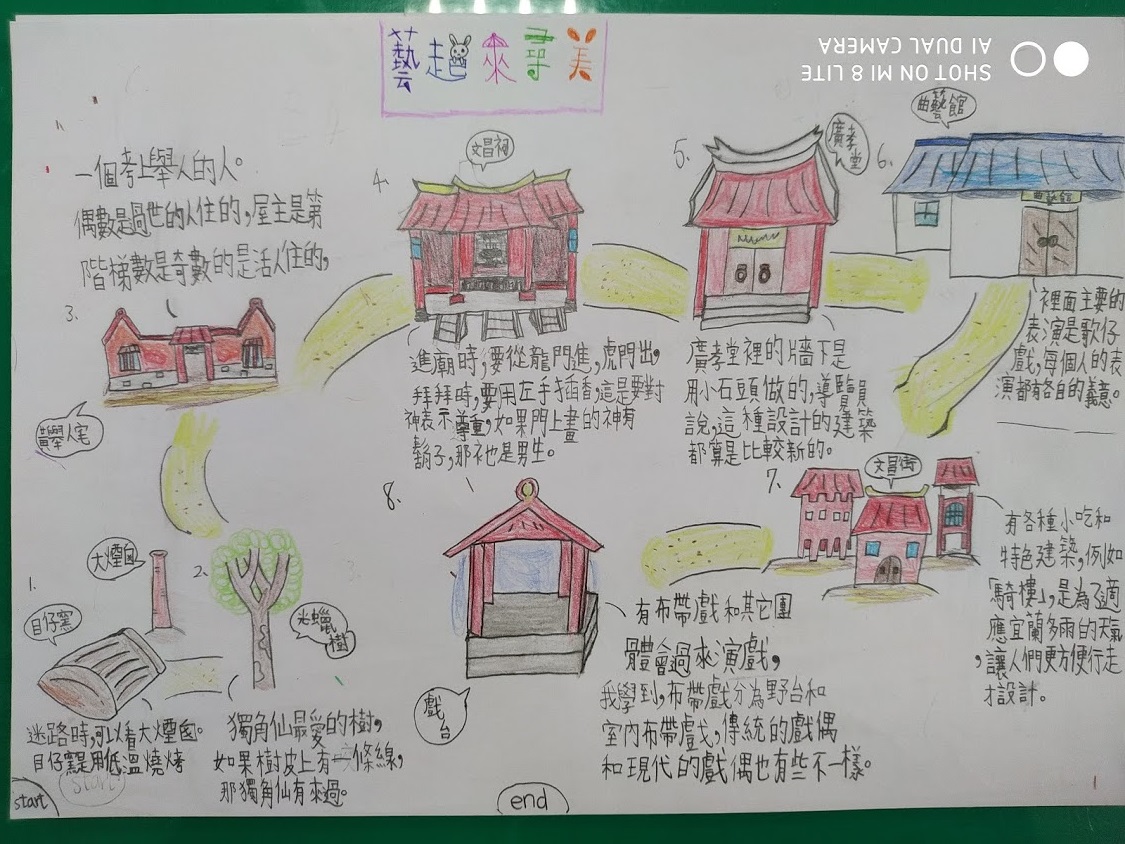 藝起來尋美
SHOT ON MI 8 LITE
AI DUAL CAMERA
1.
目仔窯
大煙囪
迷路時,可以看大煙囪。
目仔窯是用低溫燒烤
start
start
2.
光蠟樹
獨角仙最愛的樹,
如果樹皮上有一條線,
那獨角仙有來過。
3.
黃舉人宅
一個考上舉人的人。
偶數是過世的人住的,屋主是第
階梯數是奇數的是活人住的,
4.
文昌祠
進廟時,要從龍門進,虎門出,
拜拜時,要用左手插香,這是要對
神表示尊重,如果門上畫的神有
鬍子,那祂也是男生。
5.
廣孝堂
廣孝堂裡的牆下是
用小石頭做的,導覽員
說,這種設計的建築
都算是比較新的。
6.
曲藝館
裡面主要的
表演是歌仔
戲,每個人的表
演都有各自的義意。
7.
文昌街
有各種小吃和
特色建築,例如
「騎樓」,是為了適
應宜蘭多雨的天氣
,讓人們更方便行走
才設計。
8.
戲台
有布帶戲和其它團
體會過來演戲,
我學到,布帶戲分為野台和
室內布帶戲,傳統的戲偶
和現代的戲偶也有些不一樣。
end